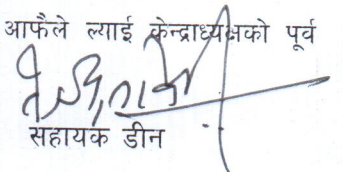 आफैले ल्याई केन्द्राध्यक्षको पूर्व
सहायक डीन